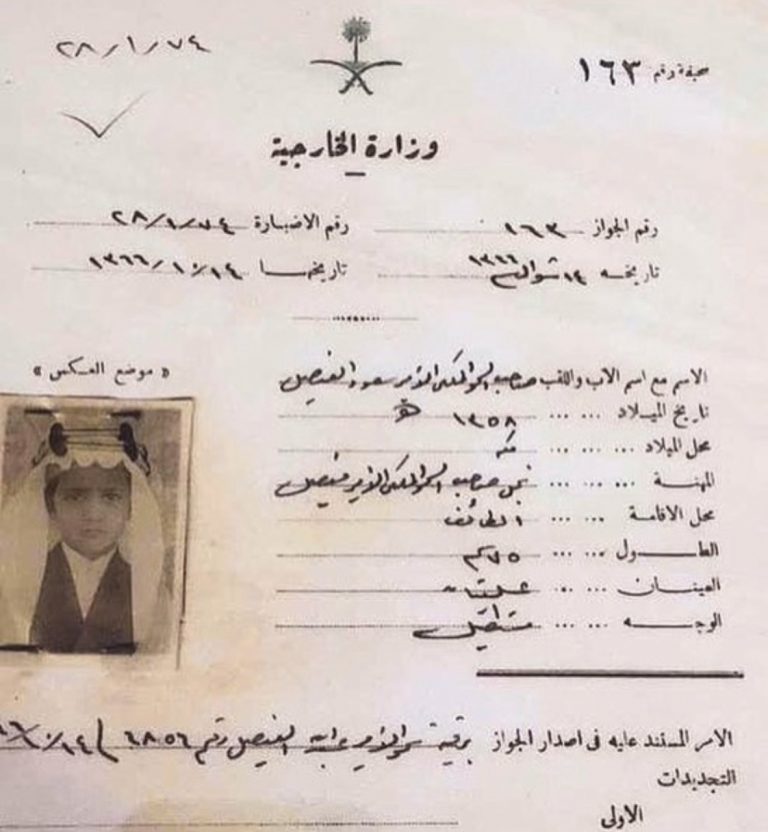 ٢٨/١/٧٤
صحيفة رقم ١٦٣
وزارة الخارجية
رقم الجواز ١٦٣ رقم الاضبارة ٢٨/١/٧٤
تاريخه ١٤ شوال ١٣٦٦ تاريخها ١٣٦٦/١٠/١٤
« موضع العكس »
الاسم مع اسم الاب واللقب صاحب السمو الملكي الامير سعود الفيصل
تاريخ الميلاد ... ... ١٣٥٨ هـ
محل الميلاد ... ... مكه
المهنة ... ... نجل صاحب السمو الملكي الامير فيصل
محل الاقامة ... ... الطائف
الطول ... ...
العينان ... ... عسليتان
الوجه ... ... مستطيل
الامر المستند عليه فى اصدار الجواز برقية سمو الامير عبدالله الفيصل رقم ٦٨٥٦
التجديدات
الاولى